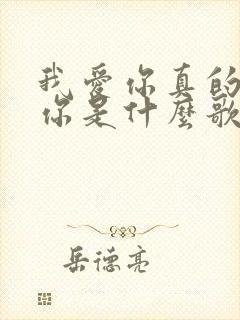 我愛你真的
你是什麼歌
岳德亮